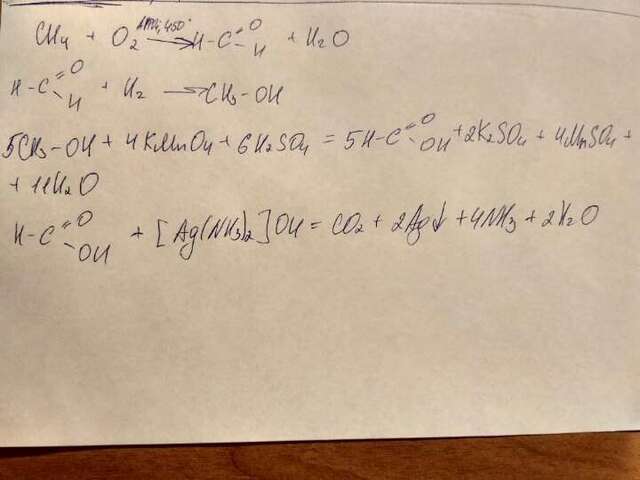 CH4 + O2 AlPO4, 450° → H-C=O -H + H2O
H-C=O -H + H2 → CH3-OH
5CH3-OH + 4KMnO4 + 6H2SO4 = 5H-C=O -OH + 2K2SO4 + 4MnSO4 +
+ 11H2O
H-C=O -OH + [Ag(NH3)2]OH = CO2 + 2Ag↓ + 4NH3 + 2H2O